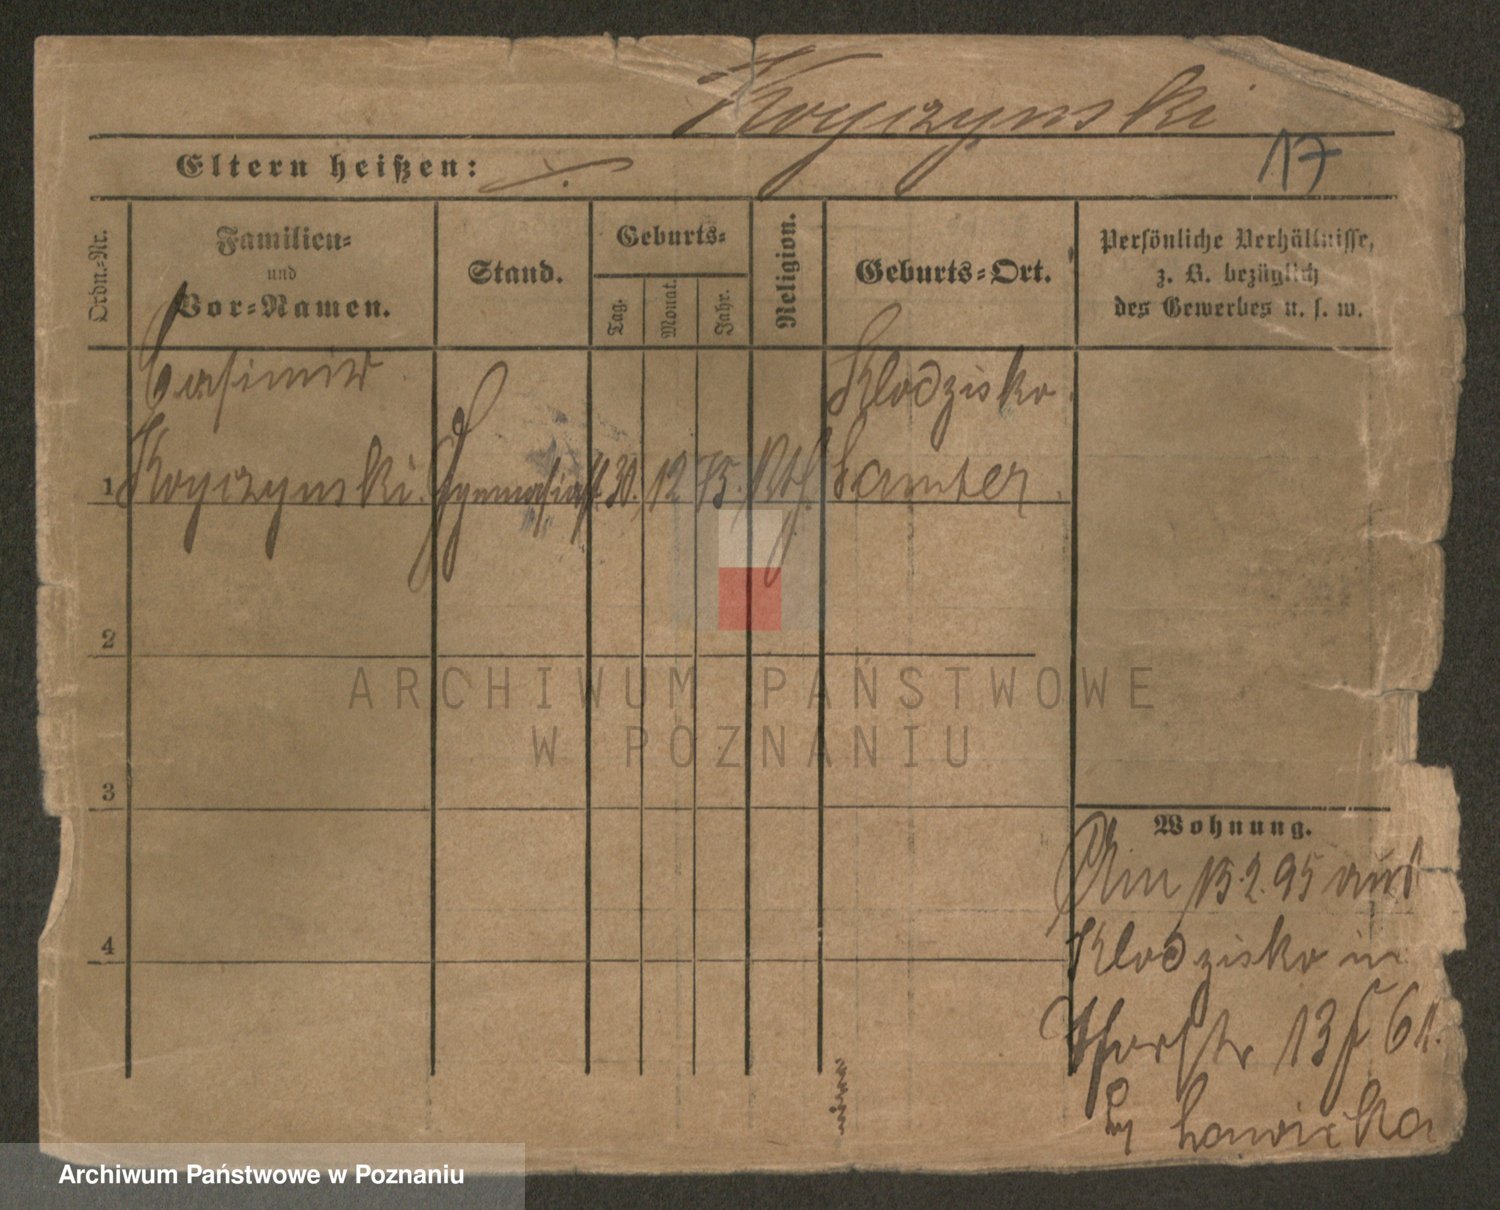 Koyczynski
17
Eltern heißen:
Ordn.-Nr.
Familien-
und
Vor-Namen.
Stand.
Geburts-
Tag.
Monat.
Jahr.
Religion.
Geburts-Ort.
Persönliche Verhältnisse,
z. B. bezüglich
des Gewerbes u. s. w.
Casimir
Klodzisko
1 Koyczynski. Gymnasiast 30. 12 75. Kth. Samter.
2
ARCHIWUM PAŃSTWOWE
W POZNANIU
3
Wohnung.
Am 13.2.95 aus
4
Klodzisko in
13 61.
by Lawicka
Archiwum Państwowe w Poznaniu